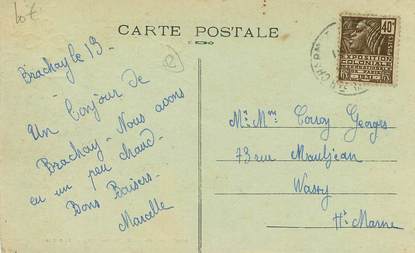 10 €
CARTE POSTALE
Brachay le 19-
Un bonjour de
Brachay - Nous avons
eu un peu chaud -
Bons Baisers -
Marcelle
Mr Mme Georges
73 rue Mauljean
Wassy
Hte Marne
40c
EXPOSITION
COLONIALE
INTERNATIONALE
PARIS 1931